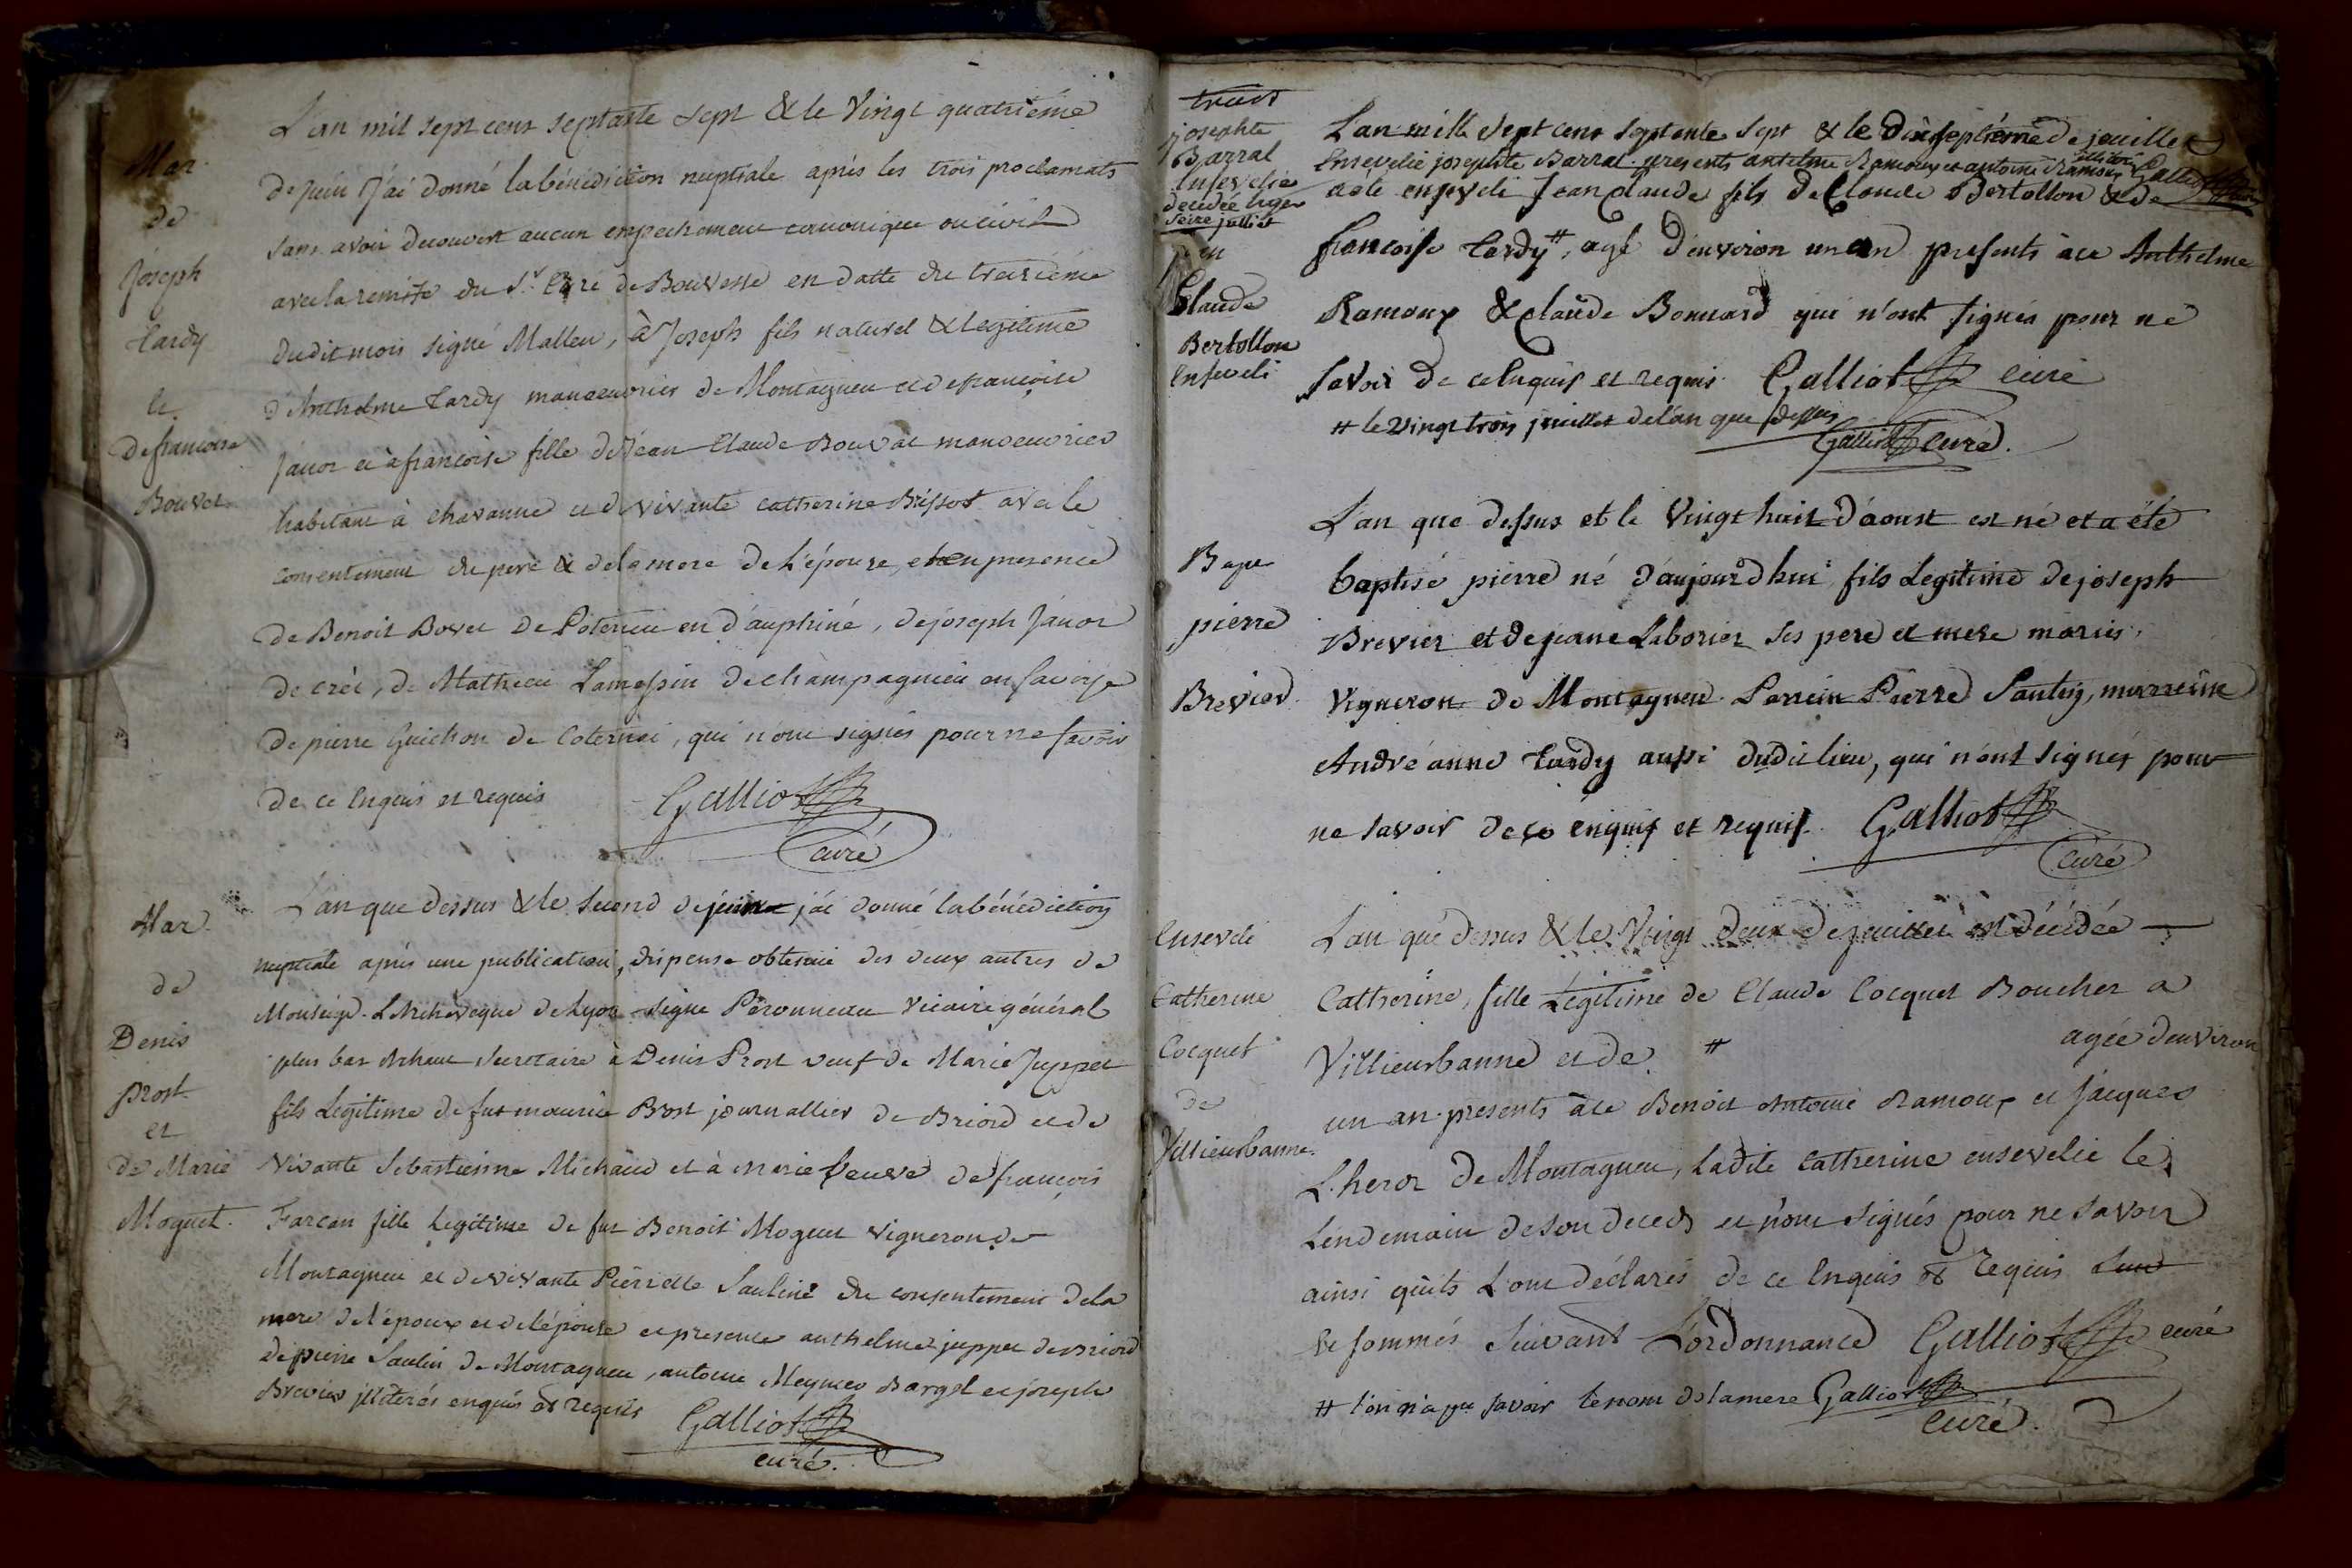 Mar
de
Joseph
tardy
le
De francoise
Bouvet
L'an mil sept cent septante sept & le Vingt quatriéme
de juin J'ai donné la bénédiction nuptiale aprés les trois proclamats
sans avoir decouvert aucun empechement canonique ou civil
avec la remise du Sr. Curé de Bouvesse en datte du treiziéme
dudit mois signé Malleu, à Joseph fils naturel & legitime
d'Anthelme tardy manoeuvrier de Montagneu et de francoise
Janor et à francoise fille de Jean Claude Bouvat manoeuvrier
habitant à Chavanne et de vivante Catherine Brissot avec le
consentement du pere & de la mere de L'épouse, et en presence
de Benoit Bovet De Poterieu en d'auphiné, de joseph Janor
de crée, de Mathieu Lamessin de champagnieu en Savoye
de pierre Guichon de Coternai, qui n'ont signés pour ne savoir
de ce Enquis et requis Galliot
curé
Mar
de
Denis
Prost
et
de Marie
Moguet.
L'an que dessus & le second de j'ai donné la bénédiction
nuptiale aprés une publication, dispense obtenüe des deux autres de
Monseigr. L'Archeveque de Lyon signé Péronneau Vicaire général
plus bas Secretaire à Denis Prost veuf de Marie Juppet
fils Legitime de fut maurice Prost journallier de Briord et de
Vivante Sebastienne Michaud et à marie veuve de francois
Farcan fille Legitime de fut Benoit Moguet Vigneron de
Montagneu et de vivante Pierrette Saulin du consentement de la
mere de l'époux et de l'épouse et presence anthelme juppet de Briord
de pierre Saulin de Montagneu, antoine Meynier et joseph
Brevier illiterés enquis et requis Galliot
curé.
josephte
Barral
Ensevelie
decedée hyer
seize juillet
jean
Claude
Bertollon
Enseveli
L'an mille sept cent septante sept & le Dixseptiéme de jeuillet
Ensevelie josephte Barral. presents antelme Ramoux et antoine Ramoux illiterés Galliot
a été enseveli Jean Claude fils de Claude Bertollon & de
francoise tardy #, agé d'environ un an presents à ce Anthelme
Ramoux & claude Bonnard qui n'ont signés pour ne
savoir de ce Enquis et requis. Galliot curé
# le vingt trois juillet de l'an que dessus
Galliot curé.
Bape
pierre
Brevier
L'an que dessus et le Vingt huit d'aoust est né et a été
baptisé pierre né d'aujourd'hui fils Legitime de joseph
Brevier et de jeane Laborier ses pere et mere mariés,
Vigneron de Montagneu. Parrein Pierre Saulin, marreine
Andréanne tardy aussi dudit lieu, qui n'ont signés pour
ne savoir de ce enquis et requis. Galliot
curé
Enseveli
Catherine
Cocquet
de
Villieurbanne.
L'an que dessus & le Vingt deux de jeuillet est décédée
Catherine, fille Legitime de Claude Cocquet Boucher a
Villieurbanne et de # agée d'environ
un an presents à ce Benoit Antoine Ramoux et Jacques
L'heror de Montagneu, Ladite Catherine ensevelie le
Lendemain de son decech et n'ont signés pour ne savoir
ainsi qu'ils L'ont déclarés de ce Enquis et requis
& sommés suivant L'ordonnance Galliot curé
# l'on n'a pu savoir le nom de la mere Galliot
curé.